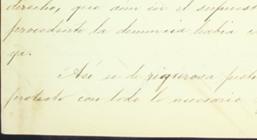 derecho, que aun en el supuesto
procedente la denuncia habia
qe.
Así es de rigurosa just
protesto con todo lo necesario